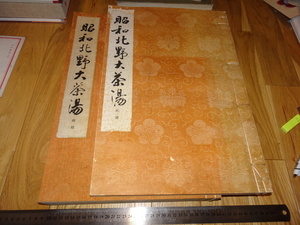 昭和北野大茶湯
昭和北野大茶湯